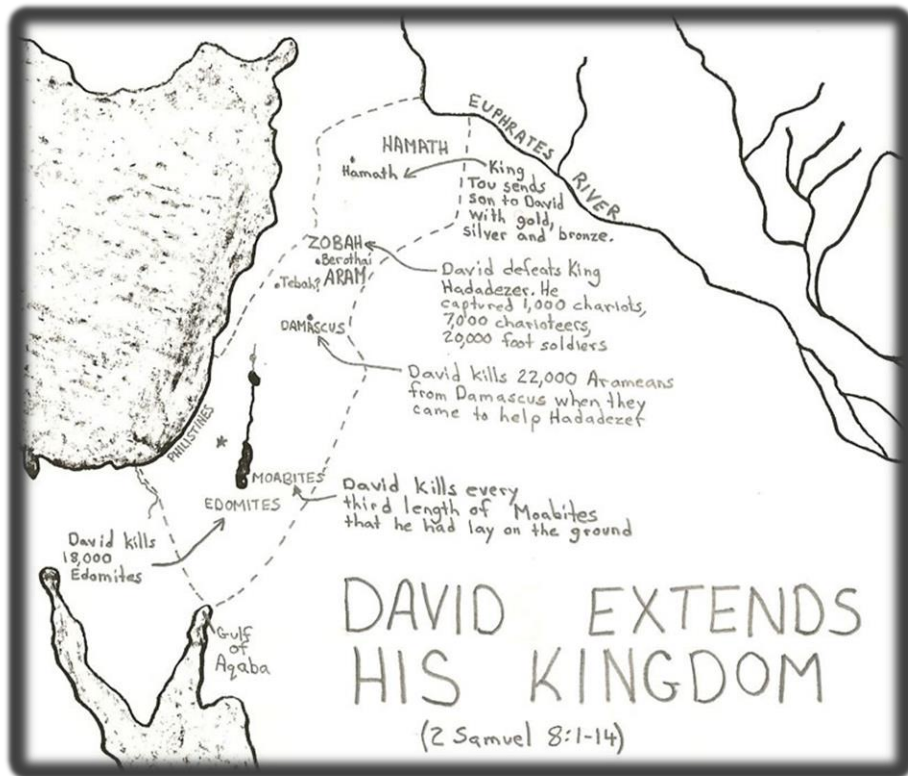 EUPHRATES RIVER
HAMATH
Hamath
King
Tou sends
son to David
with gold,
silver and bronze.
ZOBAH
Berothai
ARAM
Tebah?
David defeats King
Hadadezer. He
captured 1,000 chariots,
7,000 charioteers,
20,000 foot soldiers
DAMASCUS
David kills 22,000 Arameans
from Damascus when they
came to help Hadadezer
PHILISTINES
MOABITES
David kills every
third length of Moabites
that he had lay on the ground
EDOMITES
David kills
18,000
Edomites
Gulf
of
Aqaba
DAVID EXTENDS
HIS KINGDOM
(2 Samuel 8:1-14)